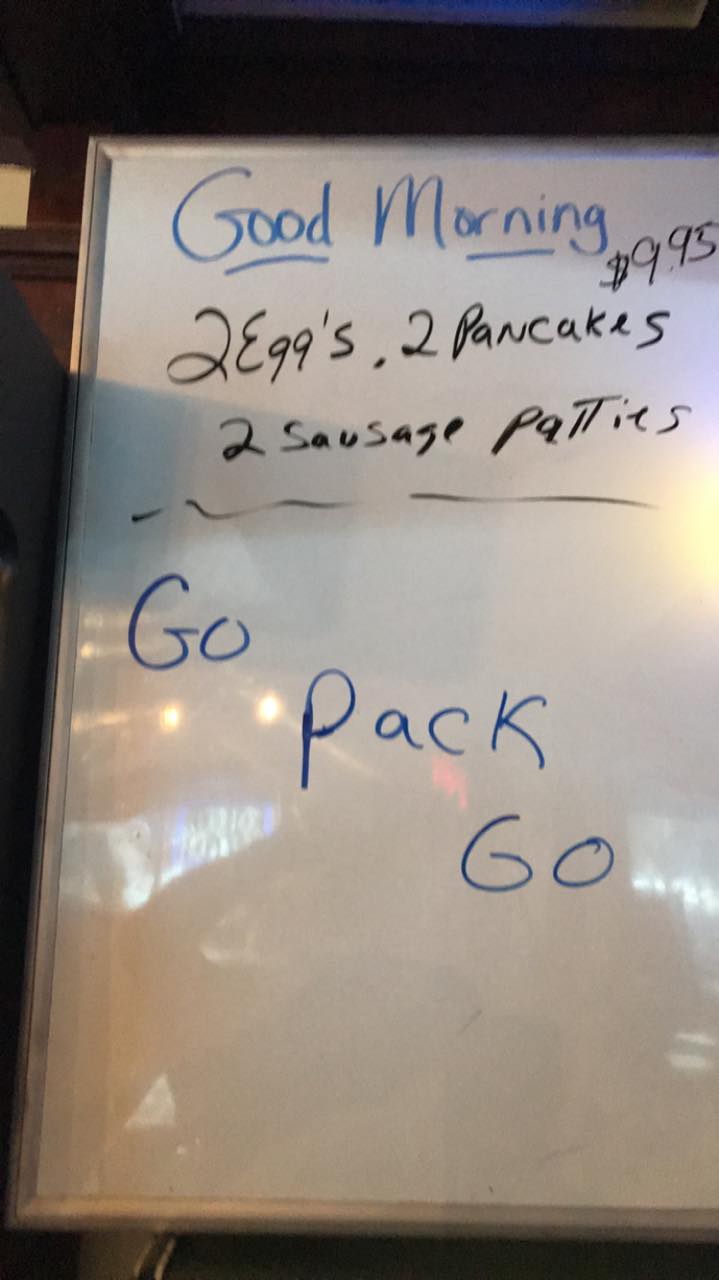 Good Morning
$9.95
2 Egg's, 2 Pancakes
2 Sausage Patties
Go
Pack
Go